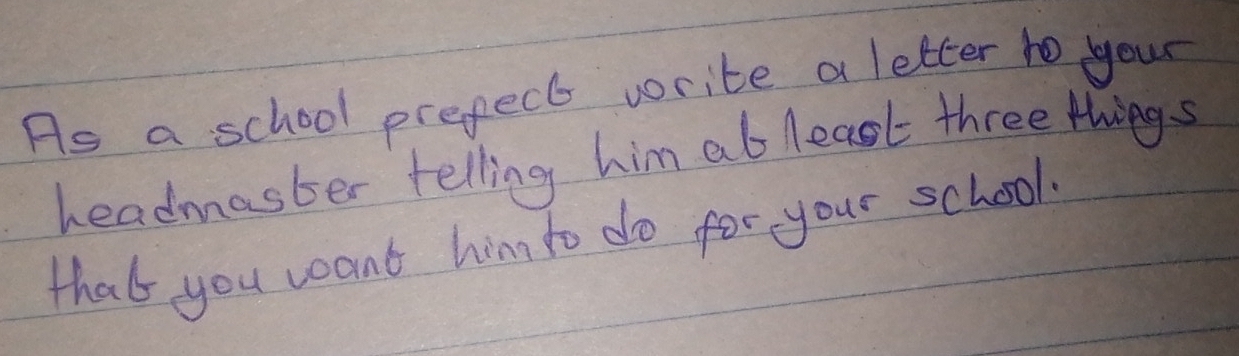 As a school prefect write a letter to your
headmaster telling him at least three things
that you want him to do for your school.